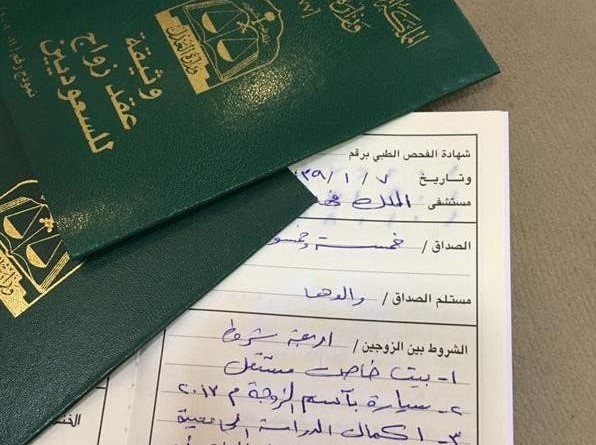 المملكة
وزارة
وزارة العدل
وثيقة
عقد زواج
للسعوديين
نموذج رقم
شهادة الفحص الطبي برقم
وتاريخ ٧ / ١ / ٣٩
مستشفى الملك
الصداق / خمسة وخمسو
مستلم الصداق / والدها
الشروط بين الزوجين / اربعة شروط
١- بيت خاص مستقل
٢- سيارة بأسم الزوجة م ٢٠١٧
٣- اكمال الدراسة الجامعية